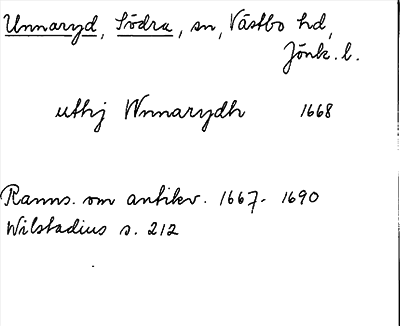 Unnaryd, Södra, sn, Västbo hd,
Jönk. l.
uthj Wnnarydh 1668
Ranns. om antikv. 1667-1690
Wilstadius s. 212